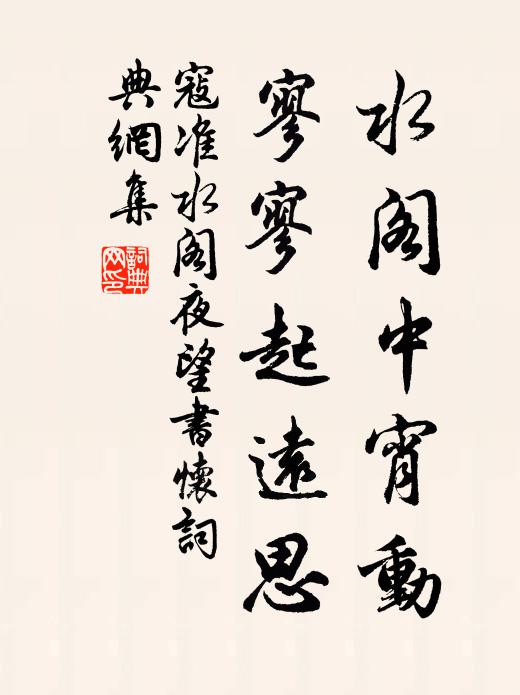 水阁中宵動
寥寥起遠思
寇准水阁夜望書懷詞
典網集
詞典網印